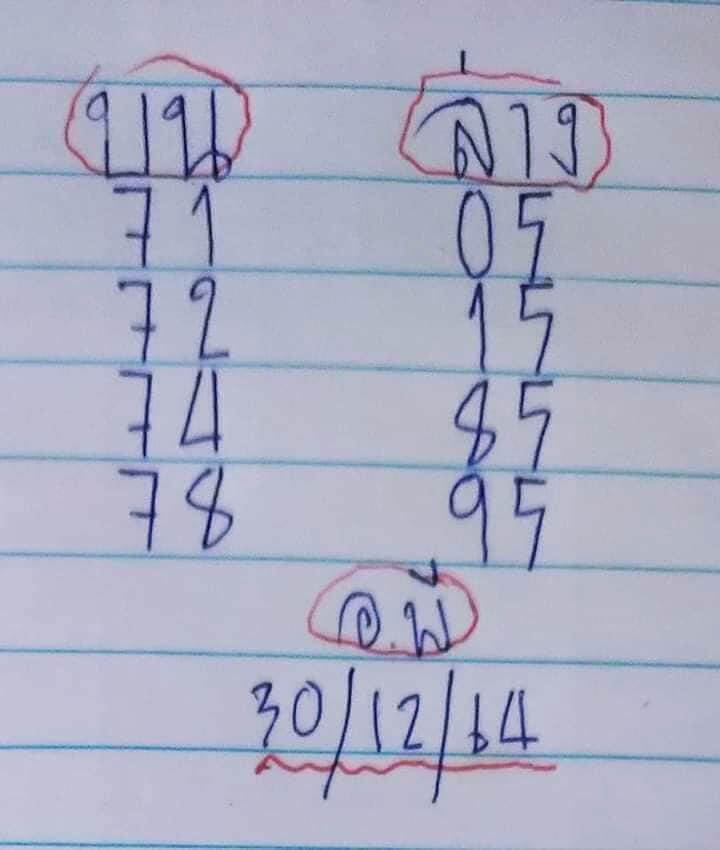 บน ล่าง
71 05
72 15
74 85
78 95
อ.พี
30/12/64